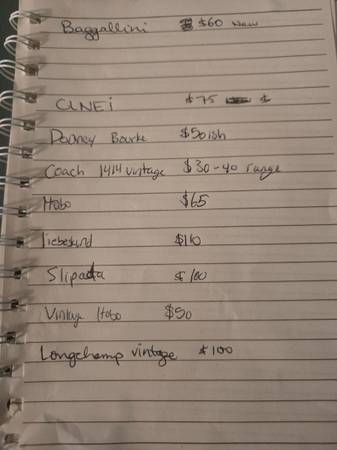 Baggallini $60 new
CLNEI $75
Dooney Bourke $50ish
Coach 1414 vintage $30-40 range
Hobo $65
liebeskind $110
Slipada $100
Vintage Hobo $50
Longchamp vintage $100